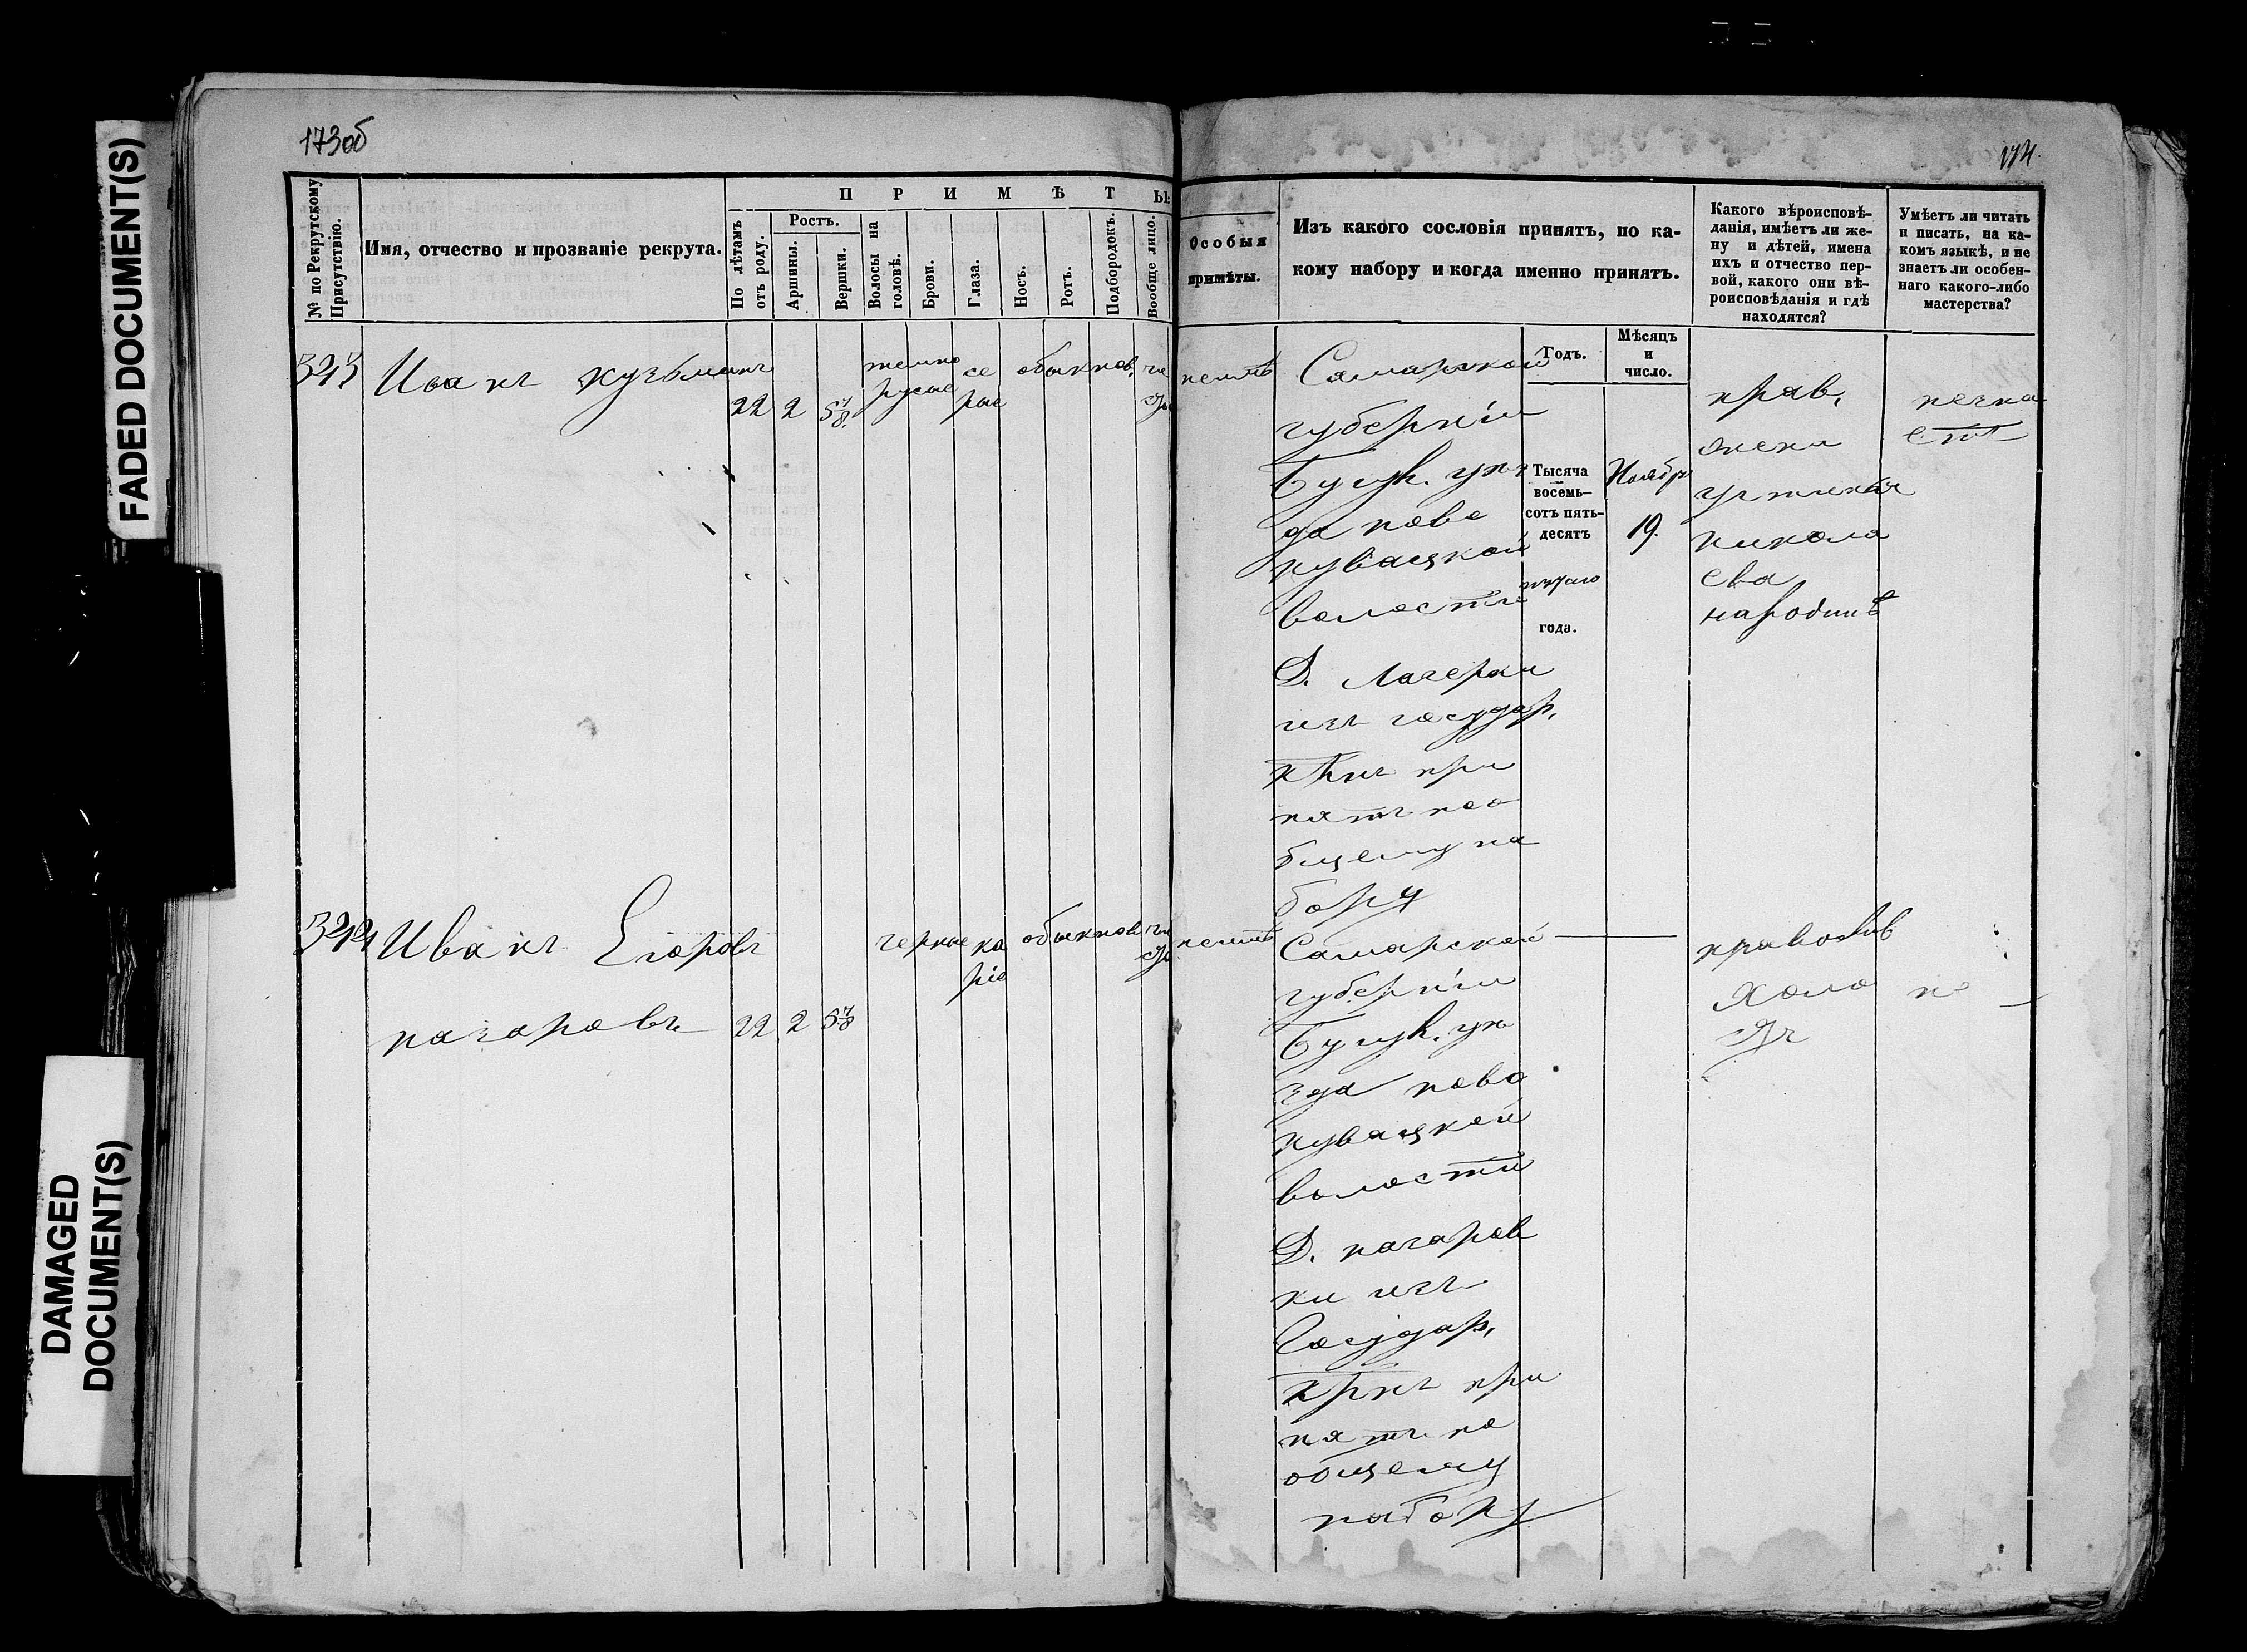 FADED DOCUMENT(S)
DAMAGED
DOCUMENT(S)
173об
174.
№ по Рекрутскому
Присутствію.
Имя, отчество и прозваніе рекрута.
ПРИМѢТЫ.
По лѣтамъ
отъ роду.
Ростъ.
Аршины.
Вершки.
Волосы на
головѣ.
Брови.
Глаза.
Носъ.
Ротъ.
Подбородокъ.
Вообще лицо.
Особыя
примѣты.
Изъ какого сословія принятъ, по ка-
кому набору и когда именно принятъ.
Какого вѣроисповѣ-
данія, имѣетъ ли же-
ну и дѣтей, имена
ихъ и отчество пер-
вой, какого они вѣ-
роисповѣданія и гдѣ
находятся?
Умѣетъ ли читать
и писать, на ка-
комъ языкѣ, и не
знаетъ ли особен-
наго какого-либо
мастерства?
Годъ.
Мѣсяцъ
и
число.
343
Иванъ Кузьминъ
22 2 5 7/8.
темно
русые
се
рые
обыкнов.
чи
стое
неимѣ
Самарской
губерніи
Бугул. уѣз
да ново
кувацкой
волости
Д. Лагерки
изъ государ.
при
нятъ по о
бщему на
бору
Тысяча
восемь-
сотъ пять-
десятъ
года.
Ноября
19.
прав.
жена
устинья
никола
ева
народинѣ
344
Иванъ Егоровъ
назаровъ
22 2 5 7/8
черные
ка
ріе
обыкнов
чи
стое
неимѣ
Самарской
губерніи
Бугул. уѣ
зда ново
кувацкой
волости
Д. назаров
ки изъ
Государ.
крнъ при
нятъ по
общему
набору
православ
холо
стъ